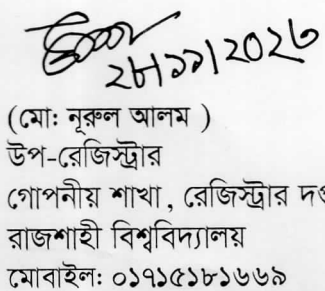 ২৮।১১।২০২৩
(মো: নূরুল আলম )
উপ-রেজিস্ট্রার
গোপনীয় শাখা, রেজিস্ট্রার দপ্ত
রাজশাহী বিশ্ববিদ্যালয়
মোবাইল: ০১৭১৫১৮১৬৬৯